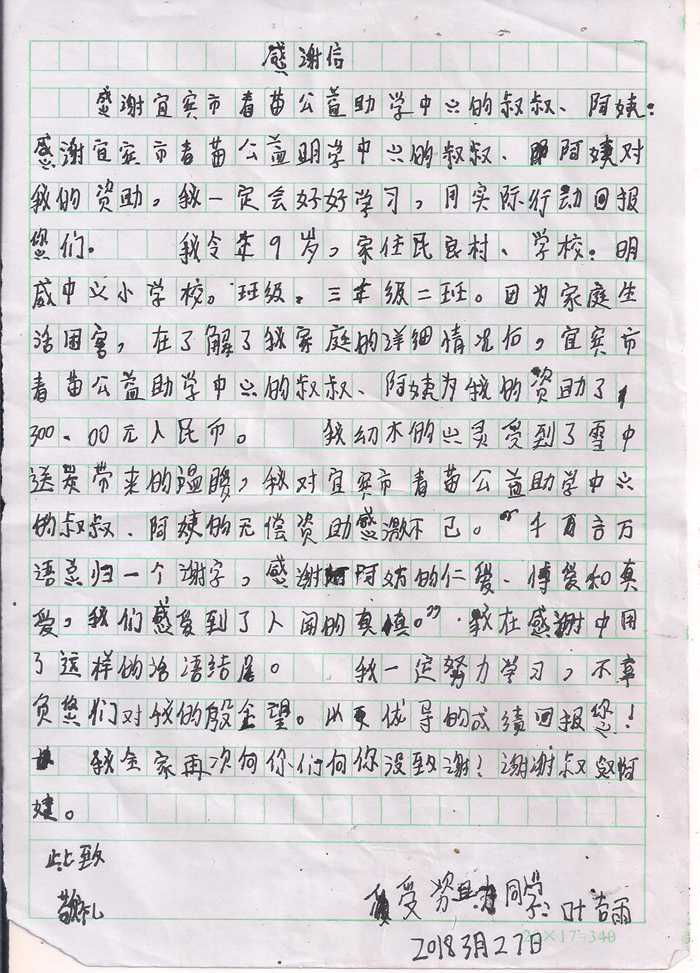 感谢信
感谢宜宾市春苗公益助学中心的叔叔、阿姨:
感谢宜宾市春苗公益助学中心的叔叔、阿姨对
我的资助,我一定会好好学习,用实际行动回报
您们。 我今年9岁,家住民良村、学校:明
威中心小学校。班级:三年级二班。因为家庭生
活困害,在了解了我家庭的详细情况后,宜宾市
春苗公益助学中心的叔叔、阿姨为我的资助了
300.00元人民币。 我幼木的心灵受到了雪中
送炭带来的温暖,我对宜宾市春苗公益助学中心
的叔叔、阿姨的无偿资助感激不已。“千百言万
语总归一个谢字,感谢阿姨的仁爱、博爱和真
爱,我们感受到了人间的真慎。”我在感谢中用
了这样的话语结尾。 我一定努力学习,不辜
负您们对我的殷金望。以更优导的成绩回报您!
我全家再次向你们向你没致谢!谢谢叔叔阿
姨。
此致
敬礼
受资助同学: 叶吉雨
2018 3月27日
20×17=340